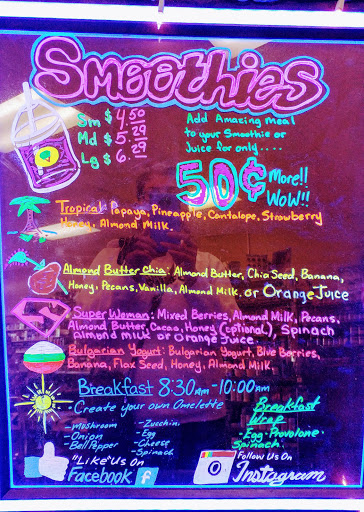 Smoothies
Sm $ 4.50
Md $ 5.29
Lg $ 6.29
Add Amazing Meal
to your Smoothie or
Juice for only....
50¢ More!!
WoW!!
Tropical: Papaya, Pineapple, Cantalope, Strawberry
Honey, Almond Milk.
Almond Butter Chia: Almond Butter, Chia Seed, Banana,
Honey, Pecans, Vanilla, Almond Milk. or Orange Juice
Super Woman: Mixed Berries, Almond Milk, Pecans,
Almond Butter, Cacao, Honey (optional), Spinach
Almond milk or Orange Juice.
Bulgarian Yogurt: Bulgarian Yogurt, Blue Berries,
Banana, Flax Seed, Honey, Almond Milk.
Breakfast 8:30am-10:00am
-Create your own Omelette
-Mushroom
-Onion
-Bell Pepper
-Zucchini
-Egg
-Cheese
-Spinach
Breakfast
Wrap
-Egg-Provolone-
Spinach
"Like" Us On
Facebook f
Follow Us On
Instagram